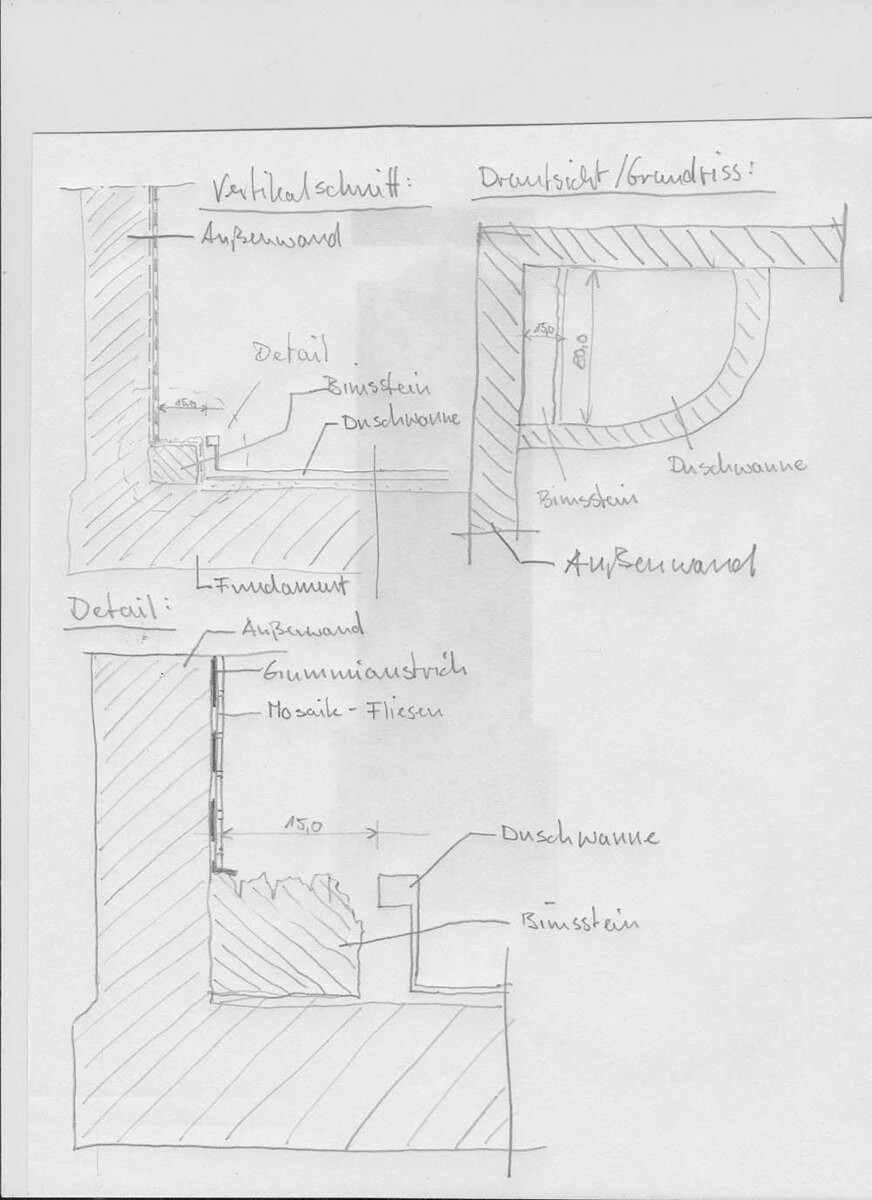 Vertikalschnitt:
Außenwand
Detail
Bimsstein
Duschwanne
15,0
Fundament
Draufsicht/Grundriss:
15,0
80,0
Duschwanne
Bimsstein
Außenwand
Detail:
Außenwand
Gummianstrich
Mosaik-Fliesen
15,0
Duschwanne
Bimsstein